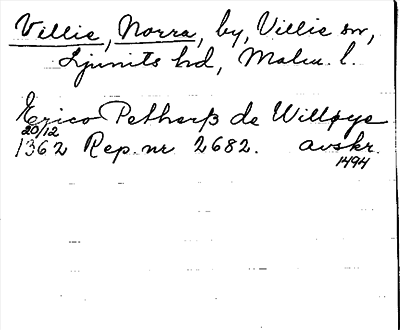 Villie, Norra, by, Villie sn,
Ljunits hd, Malm. l.
Erico Pethersß de Willøye
20/12
1362 Rep. nr 2682. avskr.
1494